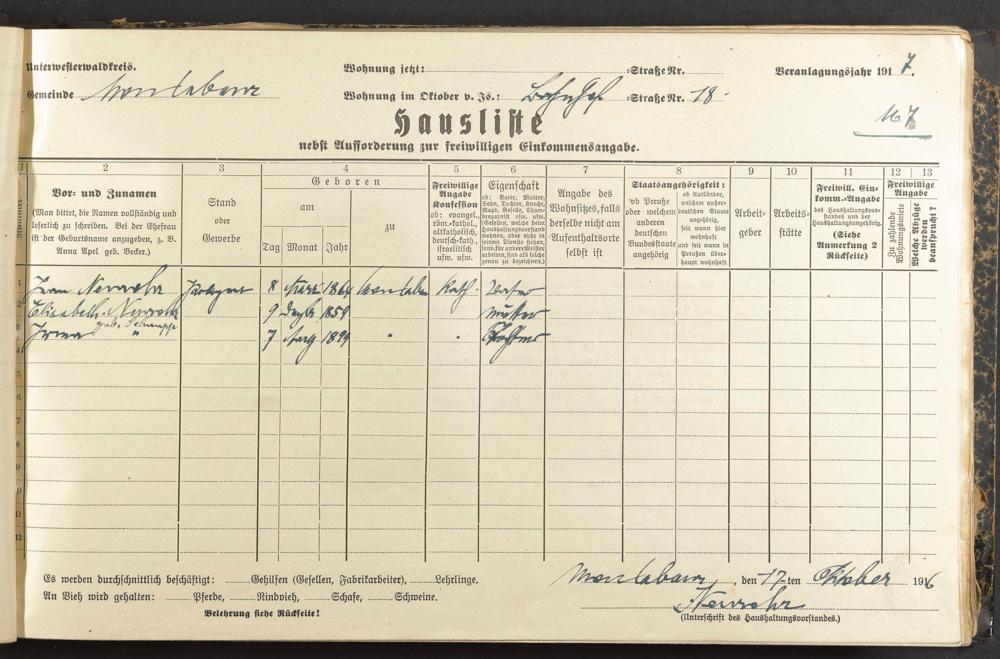 Unterwesterwaldkreis. Wohnung jetzt: :Straße Nr. Veranlagungsjahr 1917.
Gemeinde Montabaur Wohnung im Oktober v. Js.: Bahnhof :Straße Nr. 18.
167
Hausliste
nebst Aufforderung zur freiwilligen Einkommensangabe.
1 2 3 4 5 6 7 8 9 10 11 12 13
Nummer
Vor- und Zunamen
(Man bittet, die Namen vollständig und
leserlich zu schreiben. Bei der Ehefrau
ist der Geburtsname anzugeben, z. B.
Anna Apel geb. Becker.)
Stand
oder
Gewerbe
Geboren
am
Tag Monat Jahr
zu
Freiwillige
Angabe
Konfession
ob: evangel.,
röm.-kathol.,
altkatholisch,
deutsch-kath.,
israelitisch
usw. usw.
Eigenschaft
ob: Vater, Mutter,
Sohn, Tochter, Knecht,
Magd, Geselle, Cham-
bregarnist usw. usw.
Angabe des
Wohnsitzes, falls
derselbe nicht am
Aufenthaltsorte
selbst ist
Staatsangehörigkeit:
ob Preuße
oder welchem
anderen
deutschen
Bundesstaate
angehörig
ob Ausländer,
welchem außer-
deutschen Staate
angehörig,
seit wann hier
wohnhaft
und seit wann in
Preußen über-
haupt wohnhaft
Arbeit-
geber
Arbeits-
stätte
Freiwill. Ein-
komm.-Angabe
des Haushaltungsvor-
standes und der
Haushaltungsangehörig.
(Siehe
Anmerkung 2
Rückseite)
Freiwillige
Angabe
Zu zahlende
Wohnungsmiete
Welche Abzüge
werden
beansprucht?
1 Jean 8 März 1864 Montabaur Kath. Vater
2 Elisabeth 9 Dezbr 1859 Mutter
3 Irma " 7 Aug 1899 " " Tochter
4
5
6
7
8
9
10
11
12
Es werden durchschnittlich beschäftigt: Gehilfen (Gesellen, Fabrikarbeiter), Lehrlinge.
An Vieh wird gehalten: Pferde, Rindvieh, Schafe, Schweine.
Belehrung siehe Rückseite!
Montabaur, den 17ten Oktober 1916
(Unterschrift des Haushaltungsvorstandes.)